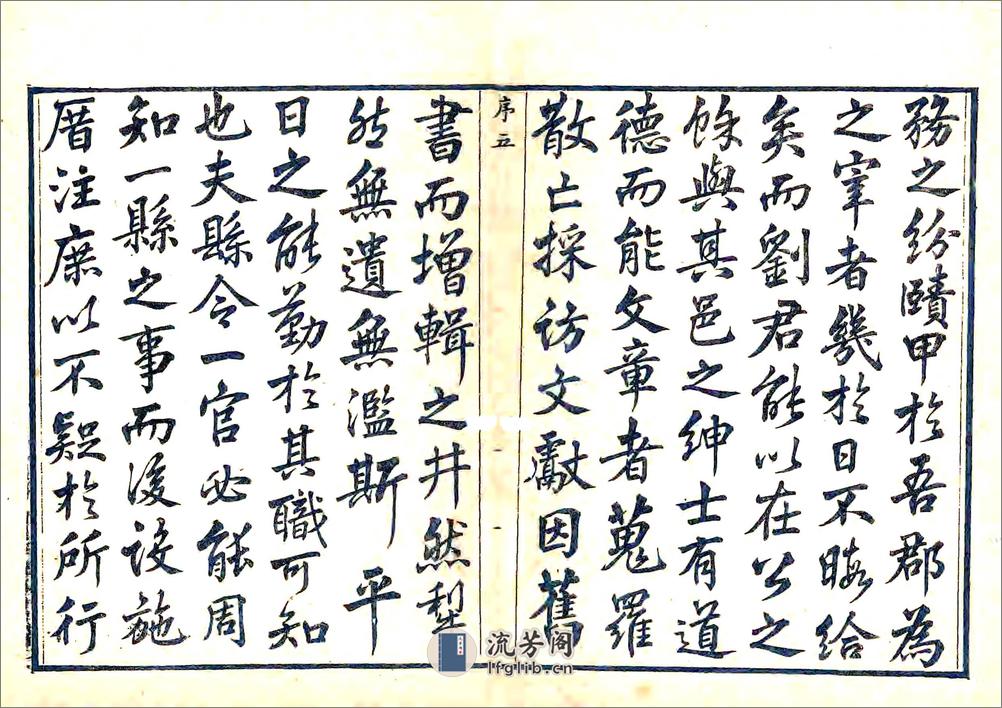 務之紛賾甲於吾郡為
之宰者幾於日不暇給
矣而劉君能以在公之
餘與其邑之紳士有道
德而能文章者蒐羅
散亡採訪文獻因舊
序五
書而增輯之井然犁
然無遺無濫斯平
日之能勤於其職可知
也夫縣令一官必能周
知一縣之事而後設施
厝注庶以不疑於所行
流芳阁
lfglib.cn